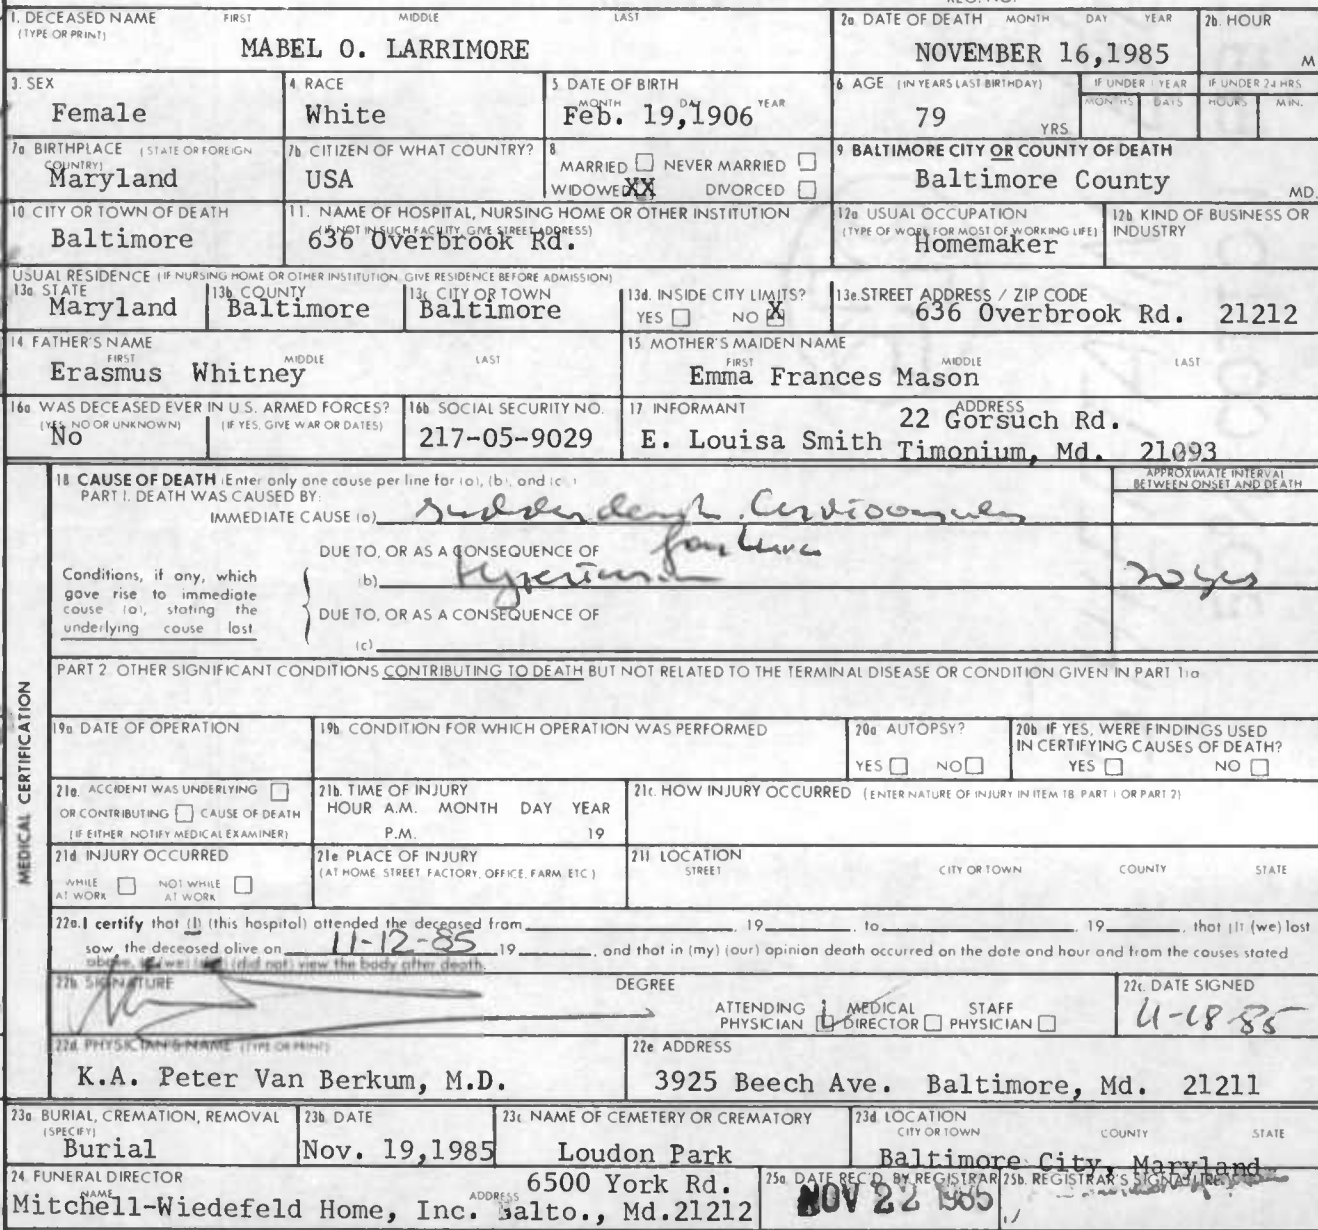 1. DECEASED NAME FIRST MIDDLE LAST
(TYPE OR PRINT)
MABEL O. LARRIMORE
2a. DATE OF DEATH MONTH DAY YEAR
NOVEMBER 16,1985
2b. HOUR
M
3. SEX
Female
4. RACE
White
5. DATE OF BIRTH
MONTH DAY YEAR
Feb. 19,1906
6 AGE (IN YEARS LAST BIRTHDAY)
79 YRS
IF UNDER 1 YEAR
MONTHS DAYS
IF UNDER 24 HRS
HOURS MIN.
7a BIRTHPLACE (STATE OR FOREIGN
COUNTRY)
Maryland
7b CITIZEN OF WHAT COUNTRY?
USA
8
MARRIED NEVER MARRIED
WIDOWED XX DIVORCED
9 BALTIMORE CITY OR COUNTY OF DEATH
Baltimore County MD.
10 CITY OR TOWN OF DEATH
Baltimore
11. NAME OF HOSPITAL, NURSING HOME OR OTHER INSTITUTION
(IF NOT IN SUCH FACILITY, GIVE STREET ADDRESS)
636 Overbrook Rd.
12a USUAL OCCUPATION
(TYPE OF WORK FOR MOST OF WORKING LIFE)
Homemaker
12b KIND OF BUSINESS OR
INDUSTRY
USUAL RESIDENCE (IF NURSING HOME OR OTHER INSTITUTION GIVE RESIDENCE BEFORE ADMISSION)
13a STATE
Maryland
13b COUNTY
Baltimore
13c CITY OR TOWN
Baltimore
13d. INSIDE CITY LIMITS?
YES NO X
13e. STREET ADDRESS / ZIP CODE
636 Overbrook Rd. 21212
14 FATHER'S NAME
FIRST MIDDLE LAST
Erasmus Whitney
15 MOTHER'S MAIDEN NAME
FIRST MIDDLE LAST
Emma Frances Mason
16a WAS DECEASED EVER IN U.S. ARMED FORCES?
(YES, NO OR UNKNOWN) (IF YES, GIVE WAR OR DATES)
No
16b SOCIAL SECURITY NO.
217-05-9029
17 INFORMANT ADDRESS
22 Gorsuch Rd.
E. Louisa Smith Timonium, Md. 21093
MEDICAL CERTIFICATION
18 CAUSE OF DEATH (Enter only one cause per line for (a), (b), and (c).)
APPROXIMATE INTERVAL
BETWEEN ONSET AND DEATH
PART I. DEATH WAS CAUSED BY:
IMMEDIATE CAUSE (a) Sudden death. Cardiovascular
failure
DUE TO, OR AS A CONSEQUENCE OF
(b) Hypertension
Conditions, if any, which
gave rise to immediate
cause (a), stating the
underlying cause last
DUE TO, OR AS A CONSEQUENCE OF
(c)
PART 2 OTHER SIGNIFICANT CONDITIONS CONTRIBUTING TO DEATH BUT NOT RELATED TO THE TERMINAL DISEASE OR CONDITION GIVEN IN PART 1(a
19a DATE OF OPERATION
19b CONDITION FOR WHICH OPERATION WAS PERFORMED
20a AUTOPSY?
YES NO
20b IF YES, WERE FINDINGS USED
IN CERTIFYING CAUSES OF DEATH?
YES NO
21a. ACCIDENT WAS UNDERLYING
OR CONTRIBUTING CAUSE OF DEATH
(IF EITHER NOTIFY MEDICAL EXAMINER)
21b. TIME OF INJURY
HOUR A.M. MONTH DAY YEAR
P.M. 19
21c. HOW INJURY OCCURRED (ENTER NATURE OF INJURY IN ITEM 18 PART 1 OR PART 2)
21d INJURY OCCURRED
WHILE AT WORK NOT WHILE AT WORK
21e PLACE OF INJURY
(AT HOME STREET, FACTORY, OFFICE, FARM, ETC)
21f LOCATION
STREET CITY OR TOWN COUNTY STATE
22a. I certify that (I) (this hospital) attended the deceased from 19 , to 19 , that (I) (we) last
saw the deceased alive on 11-12-85 19 , and that in (my) (our) opinion death occurred on the date and hour and from the causes stated
above, (did not) view the body after death.
22b SIGNATURE
DEGREE
ATTENDING PHYSICIAN MEDICAL DIRECTOR STAFF PHYSICIAN
22c. DATE SIGNED
11-18-85
22d PHYSICIAN'S NAME (TYPE OR PRINT)
K.A. Peter Van Berkum, M.D.
22e ADDRESS
3925 Beech Ave. Baltimore, Md. 21211
23a BURIAL, CREMATION, REMOVAL
(SPECIFY)
Burial
23b DATE
Nov. 19,1985
23c NAME OF CEMETERY OR CREMATORY
Loudon Park
23d LOCATION
CITY OR TOWN COUNTY STATE
Baltimore City, Maryland
24 FUNERAL DIRECTOR
NAME ADDRESS
6500 York Rd.
Mitchell-Wiedefeld Home, Inc. Balto., Md.21212
25a. DATE REC'D. BY REGISTRAR
NOV 22 1985
25b. REGISTRAR'S SIGNATURE